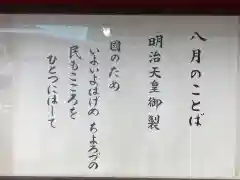 八月のことば
明治天皇御製
国のため
いよいよはげめ ちよろづの
民もこころを
ひとつにはして